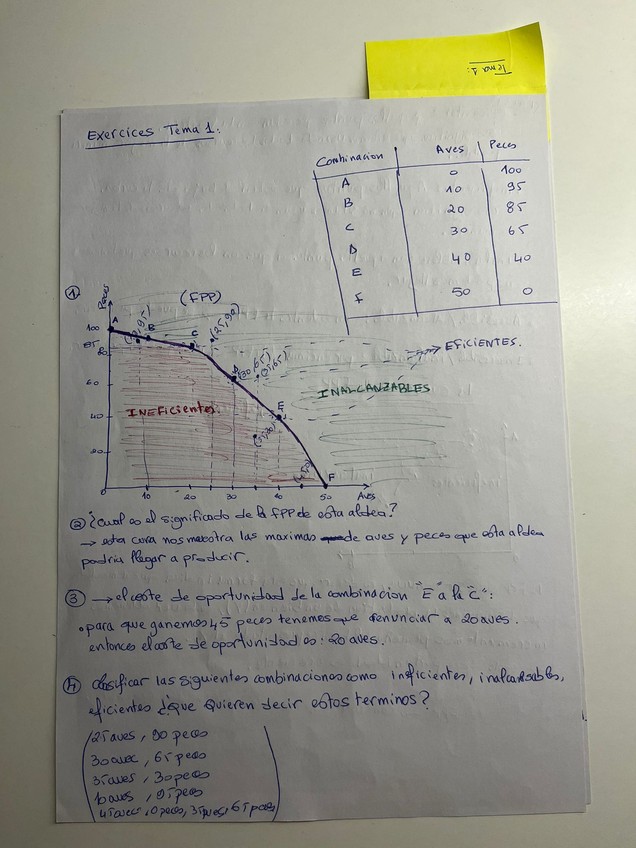 Tema 1:
Exercices Tema 1:
Combinacion Aves Peces
A 0 100
B 10 95
C 20 85
D 30 65
E 40 40
F 50 0
① Peces (FPP)
100 A B C (25,90)
85
80 D (30,65) (35,65) EFICIENTES.
60 INALCANZABLES
INEficientes.
40 E
20
0 10 20 30 40 50 F Aves
② ¿Cual es el significado de la FPP de esta aldea?
→ esta curva nos muestra las maximas de aves y peces que esta aldea
podria llegar a producir.
③ → el coste de oportunidad de la combinacion "E" a la "C":
• para que ganemos 45 peces tenemos que renunciar a 20 aves.
entonces el coste de oportunidad es: 20 aves.
4) clasificar las siguientes combinaciones como ineficientes, inalcansables,
eficientes ¿que quieren decir estos terminos?
25 aves, 90 peces
30 aves, 65 peces
35 aves, 30 peces
10 aves, 95 peces
45 aves, 0 peces, 35 aves, 65 peces